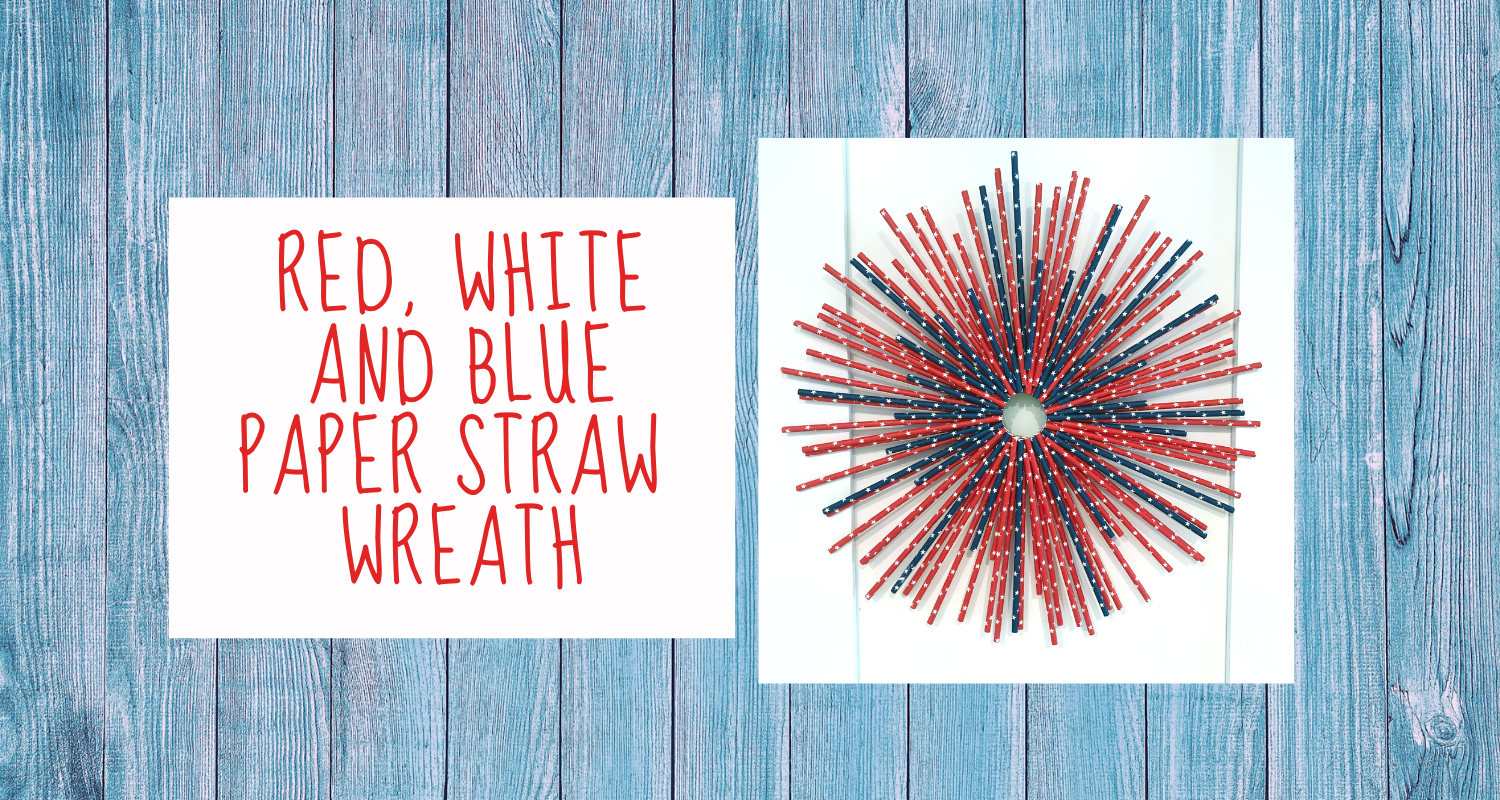 RED, WHITE
AND BLUE
PAPER STRAW
WREATH